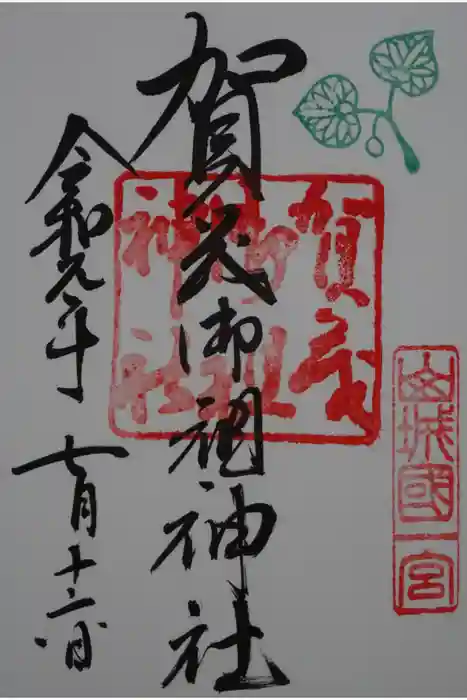 山城國一宮
賀茂御祖神社
賀茂
御祖
神社
令和元年 七月十六日